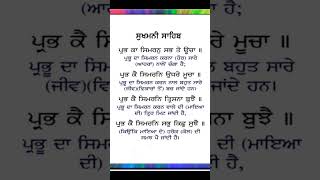 ਸੁਖਮਨੀ ਸਾਹਿਬ
ਪ੍ਰਭ ਕਾ ਸਿਮਰਨੁ ਸਭ ਤੇ ਊਚਾ ॥
ਪ੍ਰਭੂ ਦਾ ਸਿਮਰਨ ਕਰਨਾ (ਹੋਰ) ਸਾਰੇ
(ਆਹਰਾਂ) ਨਾਲੋਂ ਚੰਗਾ ਹੈ;
ਪ੍ਰਭ ਕੈ ਸਿਮਰਨਿ ਉਧਰੇ ਮੂਚਾ ॥
ਪ੍ਰਭੂ ਦਾ ਸਿਮਰਨ ਕਰਨ ਨਾਲ ਬਹੁਤ ਸਾਰੇ
(ਜੀਵ)(ਵਿਕਾਰਾਂ ਤੋਂ) ਬਚ ਜਾਂਦੇ ਹਨ।
ਪ੍ਰਭ ਕੈ ਸਿਮਰਨਿ ਤ੍ਰਿਸਨਾ ਬੁਝੈ ॥
ਪ੍ਰਭੂ ਦਾ ਸਿਮਰਨ ਕਰਨ ਵਾਲੇ ਦੀ (ਮਾਇਆ
ਦੀ) ਤ੍ਰਿਹ ਮਿਟ ਜਾਂਦੀ ਹੈ,
ਪ੍ਰਭ ਕੈ ਸਿਮਰਨਿ ਸਭੁ ਕਿਛੁ ਸੁਝੈ ॥
(ਕਿਉਂਕਿ ਮਾਇਆ ਦੇ) ਹਰੇਕ (ਕੇਲ) ਦੀ
ਸਮਝ ਪੈ ਜਾਂਦੀ ਹੈ।